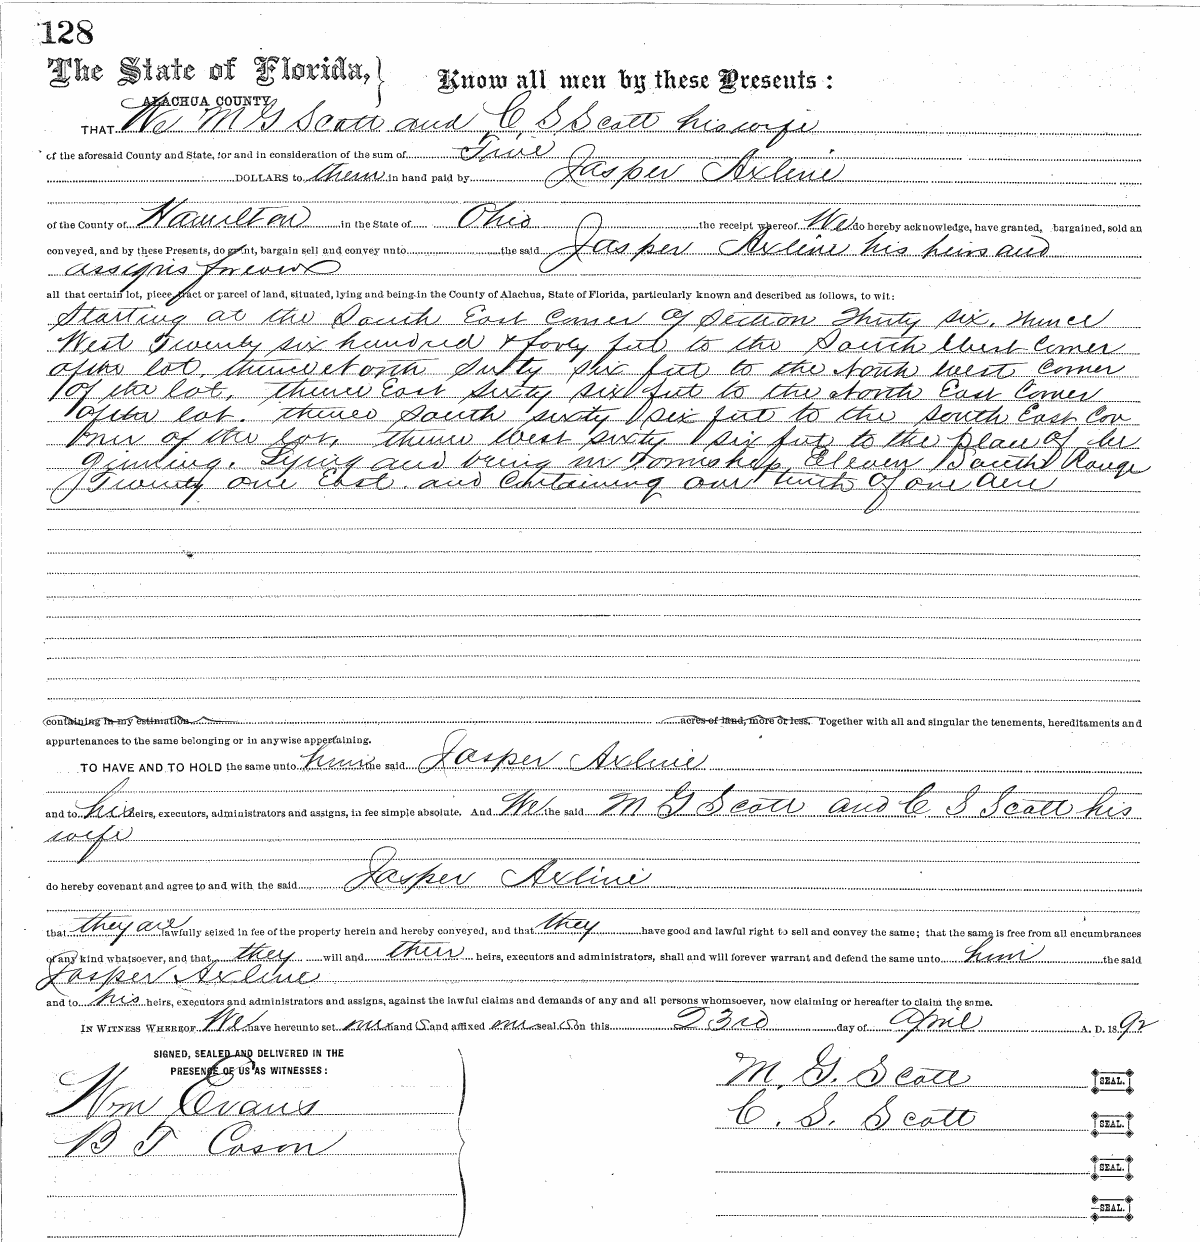 128
The State of Florida,} Know all men by these Presents:
ALACHUA COUNTY
THAT We M G Scott and C S Scott his wife
of the aforesaid County and State, for and in consideration of the sum of Five
DOLLARS to them in hand paid by Jasper Axline
of the County of Hamilton in the State of Ohio the receipt whereof We do hereby acknowledge, have granted, bargained, sold an
conveyed, and by these Presents, do grant, bargain sell and convey unto the said Jasper Axline his heirs and
assigns forever
all that certain lot, piece, tract or parcel of land, situated, lying and being in the County of Alachua, State of Florida, particularly known and described as follows, to wit:
Starting at the South East Corner of Section Thirty six. thence
West Twenty six hundred & forty feet to the South West Corner
of the lot. thence North Sixty six feet to the North West Corner
of the lot. thence East Sixty six feet to the North East Corner
of the lot. thence South sixty six feet to the South East Cor
ner of the lot, thence West sixty six feet to the place of be
ginning. Lying and being in Township Eleven South Range
Twenty one East. and Containing one tenth of one acre
containing in my estimation acres of land, more or less. Together with all and singular the tenements, hereditaments and
appurtenances to the same belonging or in anywise appertaining.
TO HAVE AND TO HOLD the same unto him the said Jasper Axline
and to his heirs, executors, administrators and assigns, in fee simple absolute. And We the said M G Scott and C S Scott his
wife
do hereby covenant and agree to and with the said Jasper Axline
that they are lawfully seized in fee of the property herein and hereby conveyed, and that they have good and lawful right to sell and convey the same; that the same is free from all encumbrances
of any kind whatsoever, and that they will and their heirs, executors and administrators, shall and will forever warrant and defend the same unto him the said
Jasper Axline
and to his heirs, executors and administrators and assigns, against the lawful claims and demands of any and all persons whomsoever, now claiming or hereafter to claim the same.
IN WITNESS WHEREOF We have hereunto set our hand S and affixed our seal S on this 23rd day of April A. D. 1892
SIGNED, SEALED AND DELIVERED IN THE
PRESENCE OF US AS WITNESSES:
Wm Evans
B T Cason
M. G. Scott SEAL.
C. S. Scott SEAL.
SEAL.
SEAL.